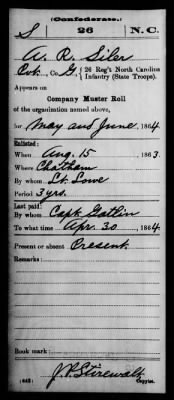 (Confederate.)
S 26 N.C.
A. R. Siler
Pvt., Co. G, 26 Reg't North Carolina
Infantry (State Troops).
Appears on
Company Muster Roll
of the organization named above,
for May and June, 1864.
Enlisted:
When Aug. 15, 1863.
Where Chatham
By whom Lt. Lowe
Period 3 yrs.
Last paid:
By whom Capt. Gatlin
To what time Apr. 30, 1864.
Present or absent Present.
Remarks:
Book mark:
(642) J. P. Stirewalt
Copyist.